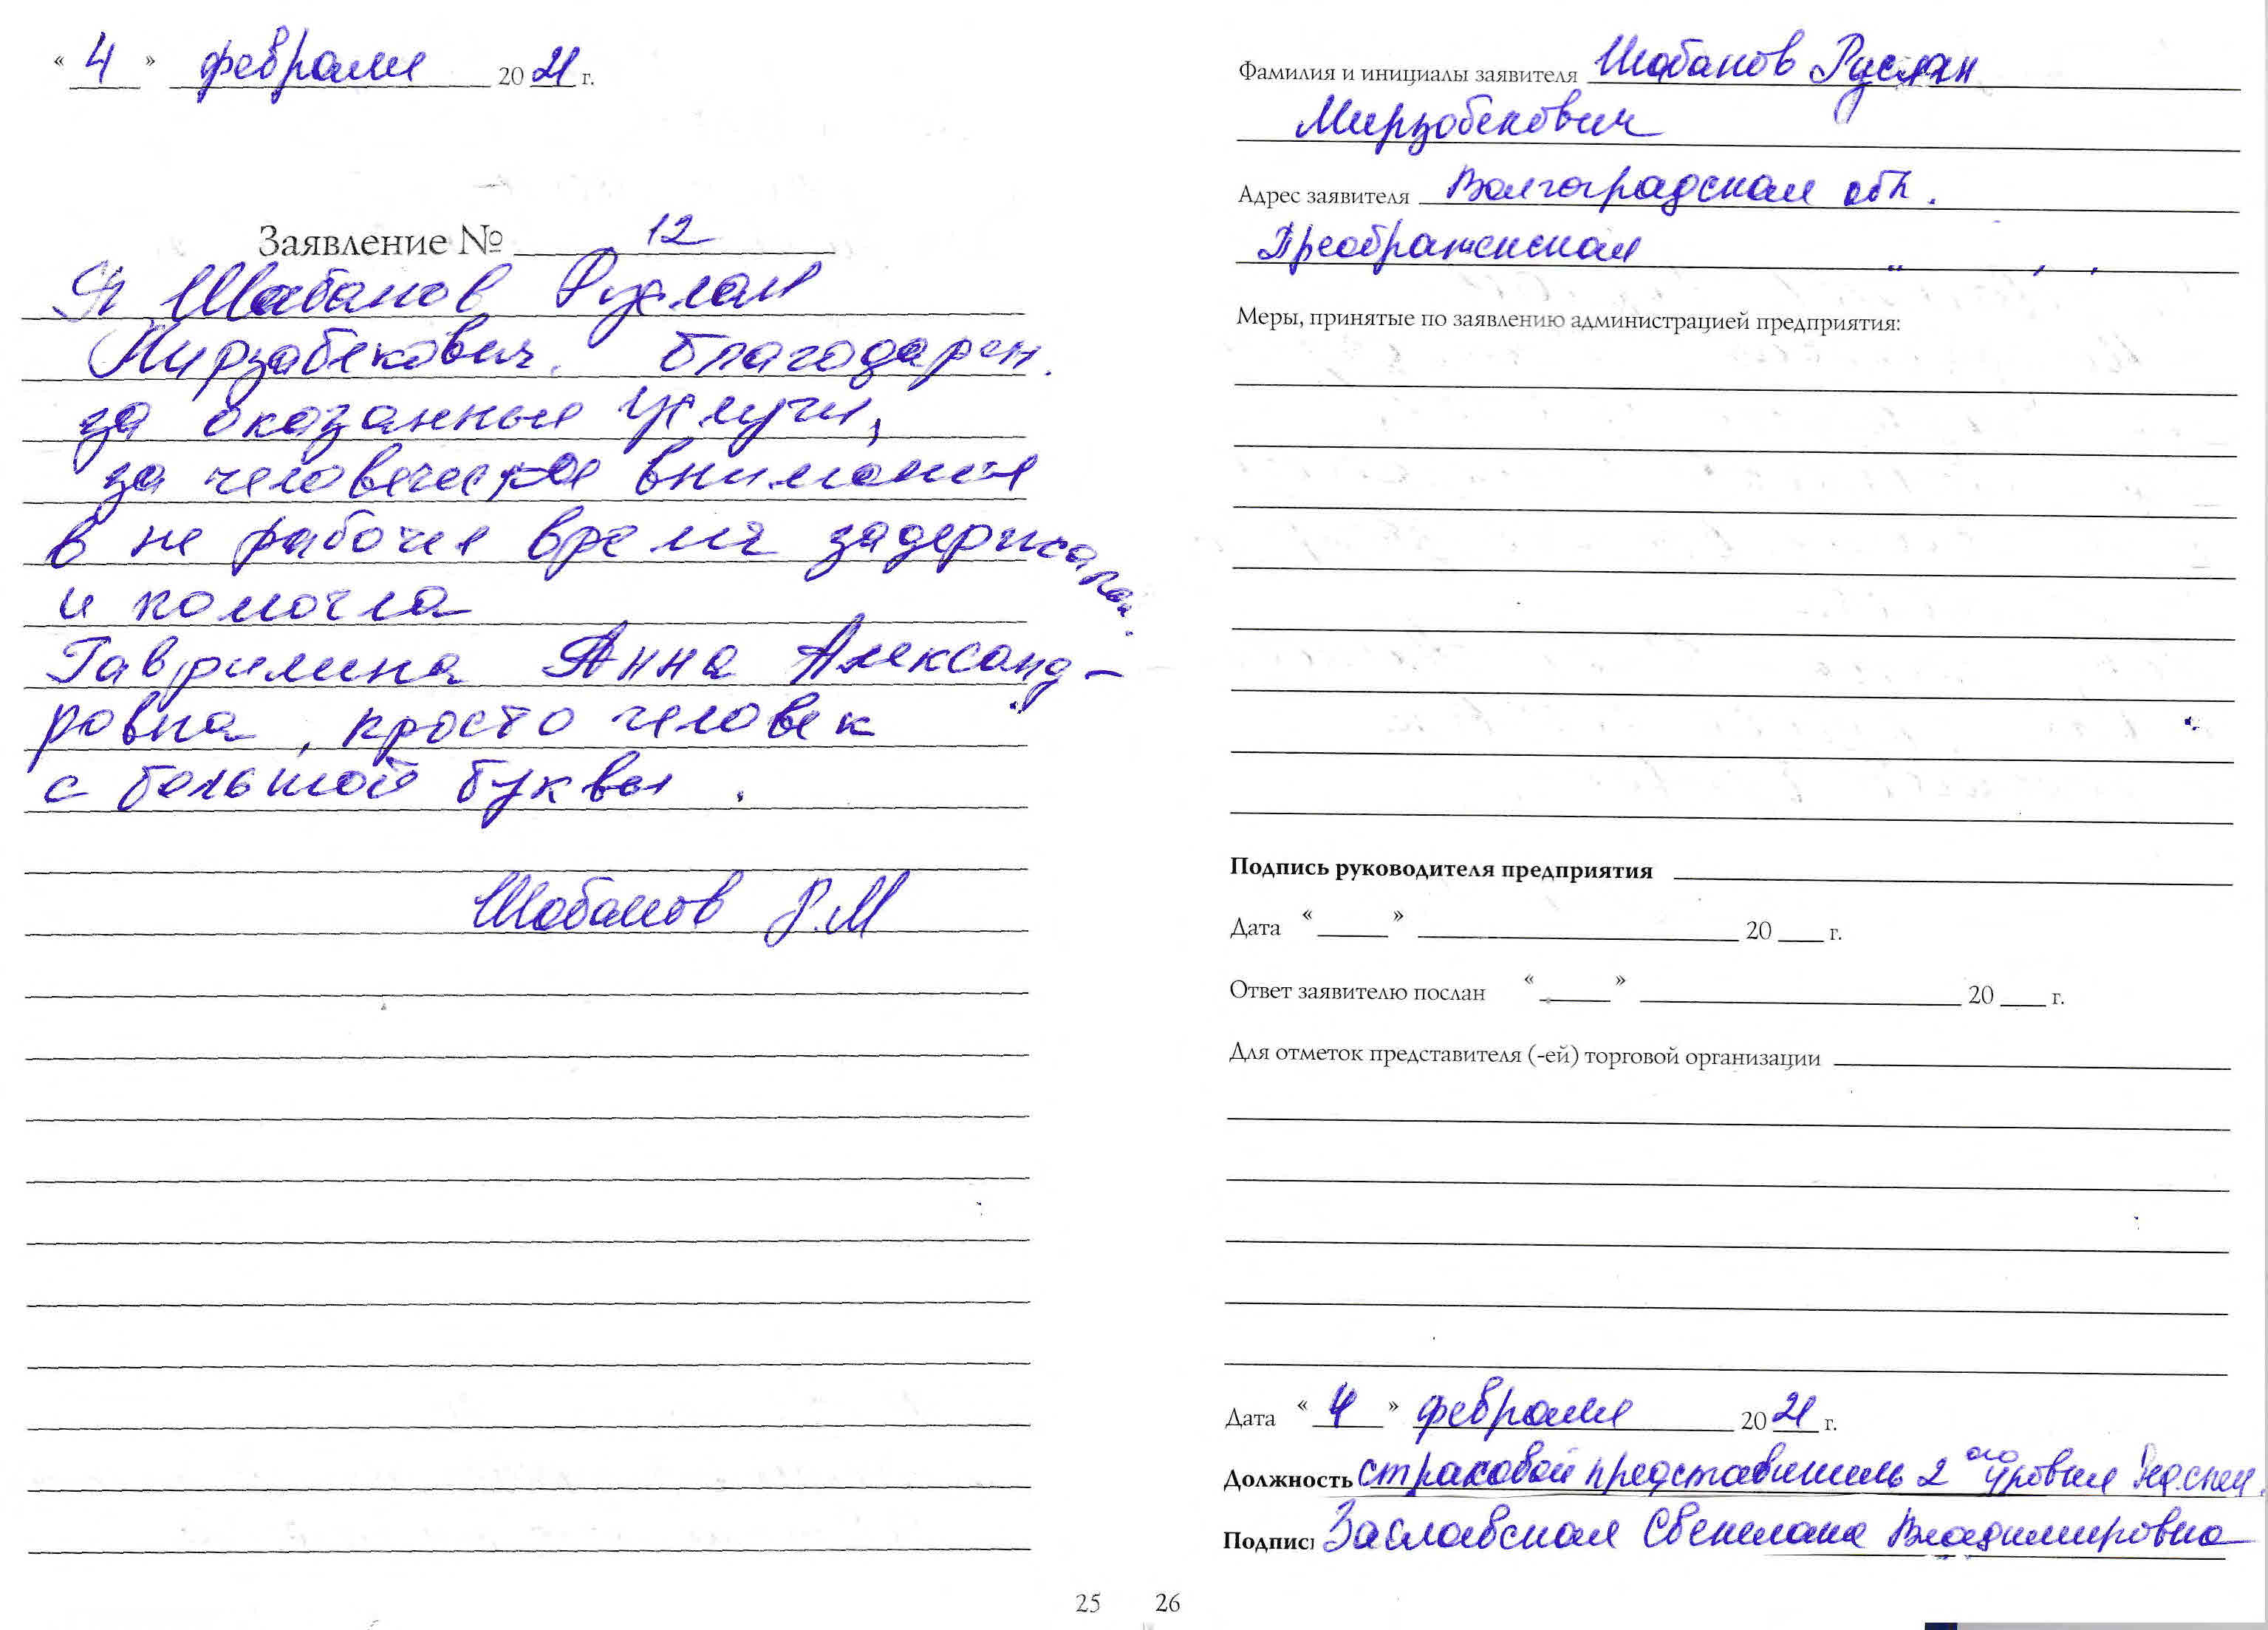 « 4 » февраля 2021 г.
Заявление № 12
Я Шабанов Руслан
Мирзабекович. благодарен.
за оказанные услуги,
за человеческое внимание
в не рабочее время задержалась.
и помогла
Гаврилина Анна Александ-
ровна, просто человек
с большой буквы.
Шабанов Р.М
25
Фамилия и инициалы заявителя Шабанов Руслан
Мирзобекович
Адрес заявителя Волгоградская обл.
Преображенская
Меры, принятые по заявлению администрацией предприятия:
Подпись руководителя предприятия
Дата « » 20 г.
Ответ заявителю послан « » 20 г.
Для отметок представителя (-ей) торговой организации
Дата « 4 » февраля 2021 г.
Должность страховой представитель 2 ого уровня
Подпис Заславская Светлана Владимировна
26